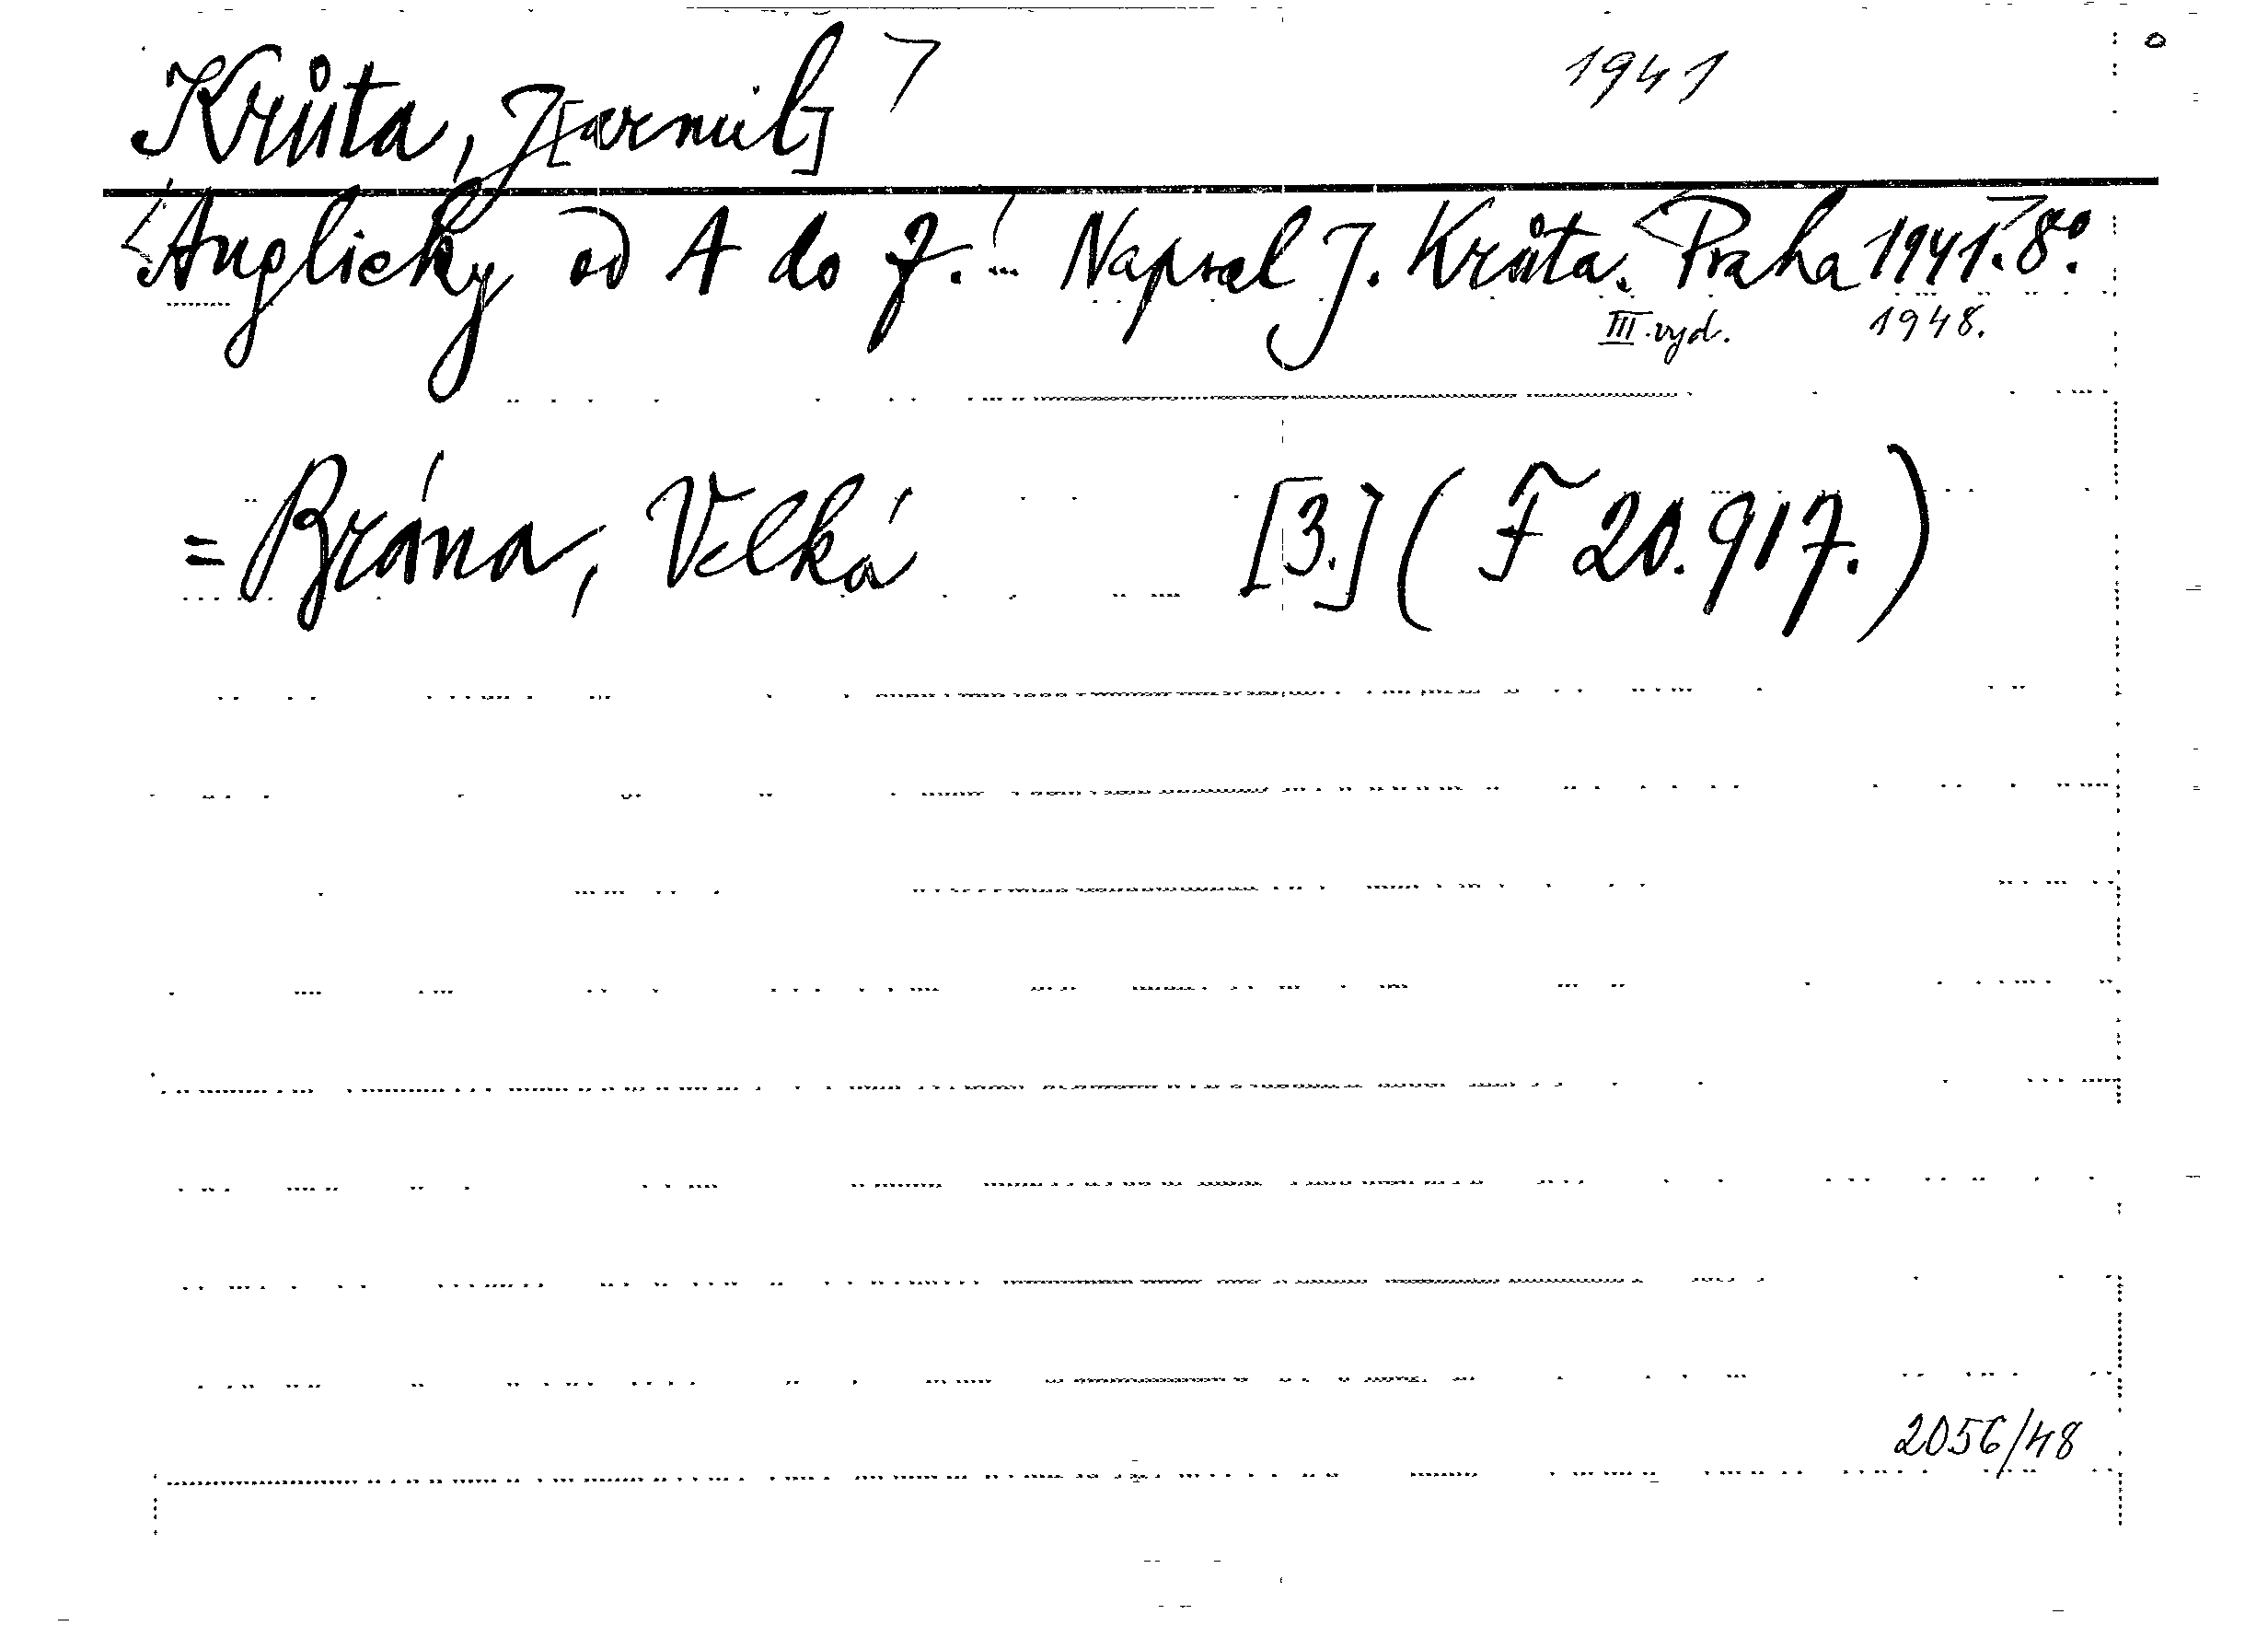 Krůta, J[armil] 1941
Anglicky od A do Z. ... Napsal J. Krůta. Praha 1941. 8º.
III. vyd. 1948.
= Brána, Velká [3.] (F 20.917.)
2056/48